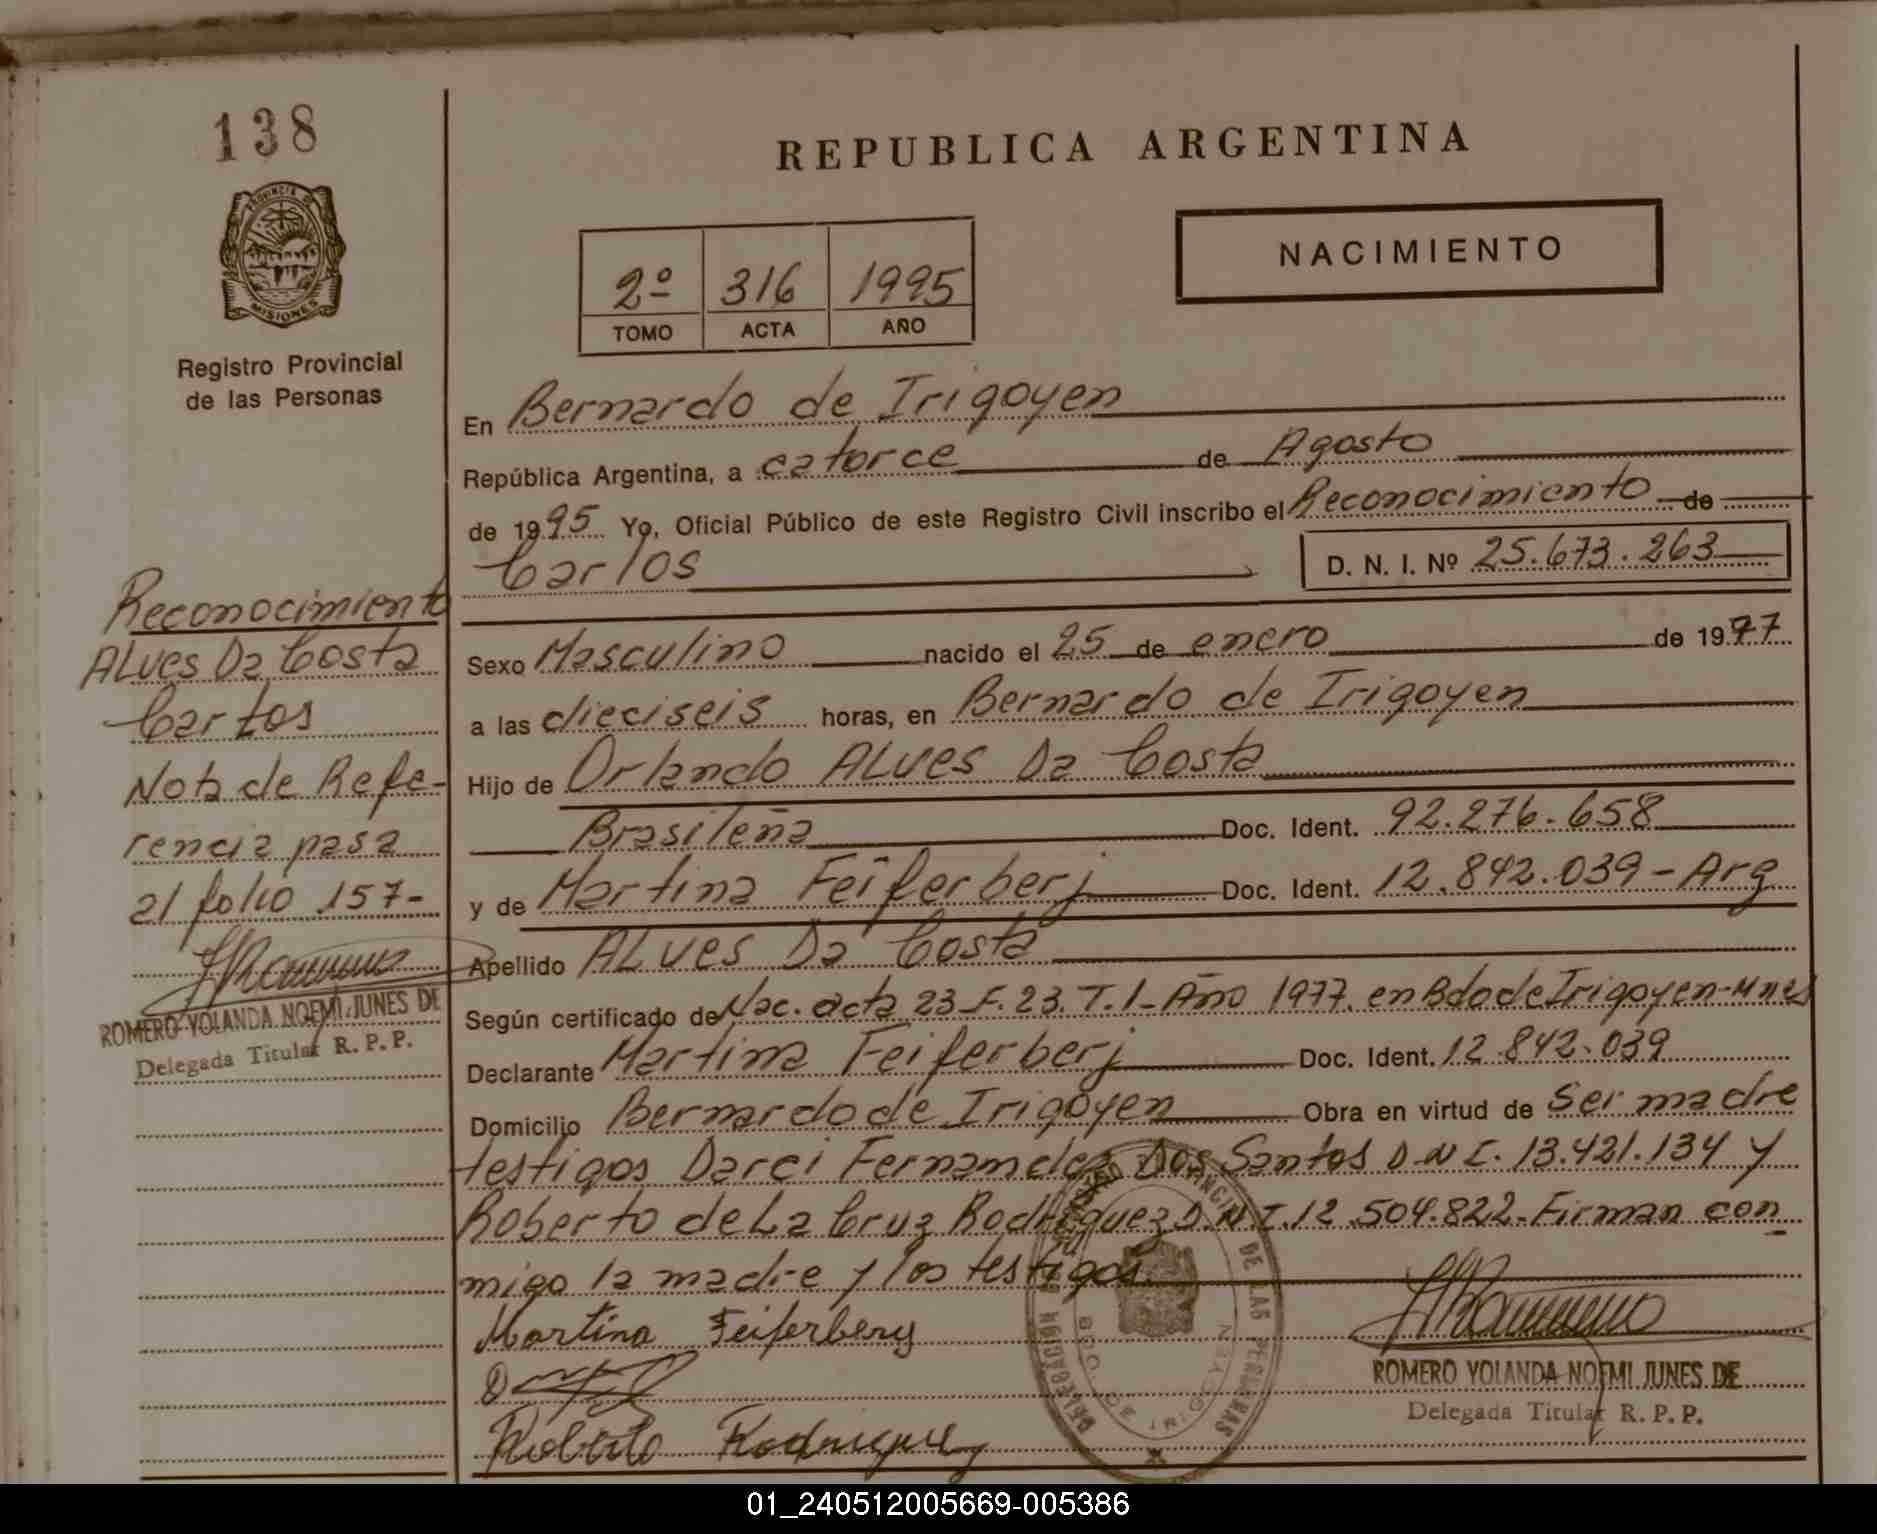 138
PROVINCIA DE
MISIONES
Registro Provincial
de las Personas
REPUBLICA ARGENTINA
NACIMIENTO
2º 316 1995
TOMO ACTA AÑO
En Bernardo de Irigoyen
República Argentina, a catorce de Agosto
de 1995 Yo, Oficial Público de este Registro Civil inscribo el Reconocimiento de
Carlos
D. N. I. Nº 25.673.263
Sexo Masculino nacido el 25 de enero de 1977
a las dieciseis horas, en Bernardo de Irigoyen
Hijo de Orlando ALves Da Costa
Brasileña Doc. Ident. 92.276.658
y de Martina Feiferberj Doc. Ident. 12.842.039 - Arg
Apellido ALves Da Costa
Según certificado de Nac. acta 23 F. 23. T. 1 - Año 1977. en Bdo de Irigoyen - Mnes
Declarante Martina Feiferberj Doc. Ident. 12.842.039
Domicilio Bernardo de Irigoyen Obra en virtud de Ser madre
testigos Darci Fernandez Dos Santos D.N.I. 13.421.134 y
Roberto de La Cruz Rodriguez D.N.I. 12.504.822 - Firman con
migo la madre y los testigos.
Martina Feiferberg
Roberto Rodriguez
ROMERO YOLANDA NOEMI JUNES DE
Delegada Titular R. P. P.
DE LAS PERSONAS
BDO. DE IRIGOYEN
Reconocimiento
ALves Da Costa
Carlos
Nota de Refe-
rencia pasa
al folio 157-
ROMERO YOLANDA NOEMI JUNES DE
Delegada Titular R. P. P.
01_240512005669-005386